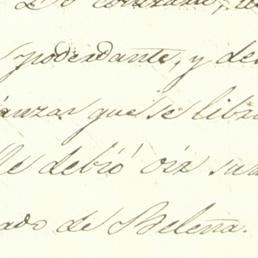 poderdante, y de
anzas que se libr
lle debió oir su
ado de Beleña.